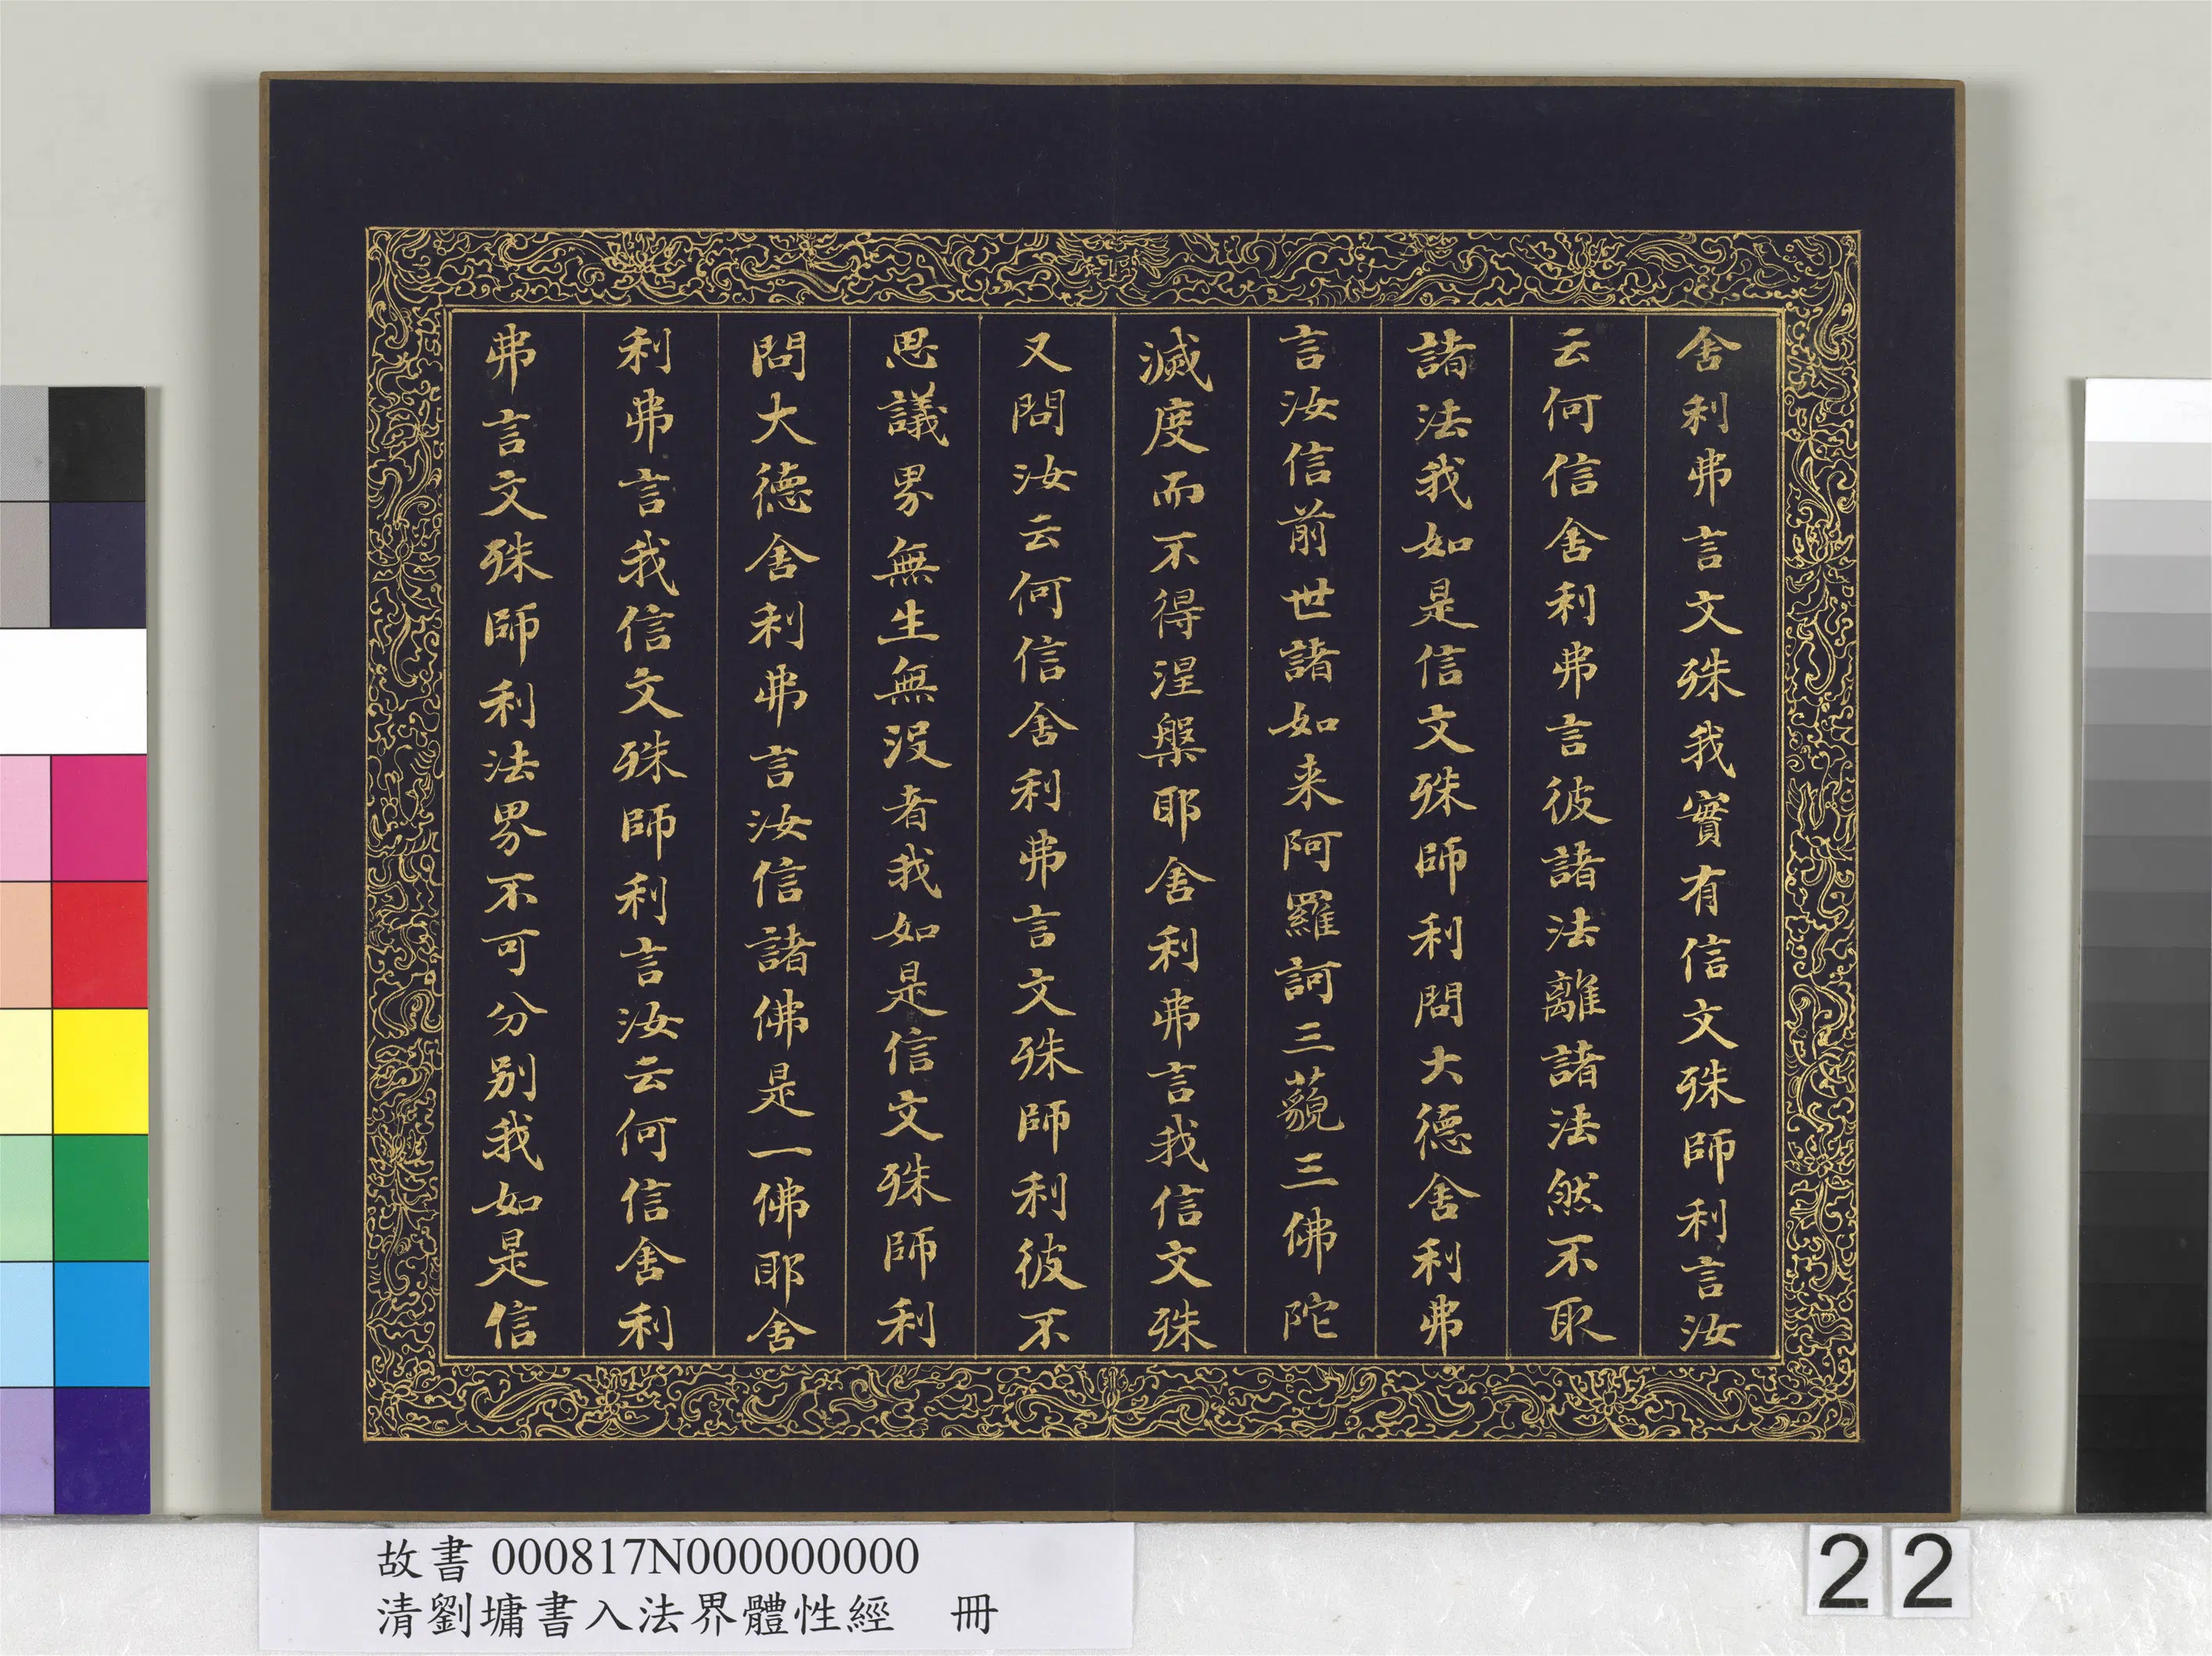 舍利弗言文殊我實有信文殊師利言汝
云何信舍利弗言彼諸法離諸法然不取
諸法我如是信文殊師利問大德舍利弗
言汝信前世諸如来阿羅訶三藐三佛陀
滅度而不得涅槃耶舍利弗言我信文殊
又問汝云何信舍利弗言文殊師利彼不
思議界無生無没者我如是信文殊師利
問大德舍利弗言汝信諸佛是一佛耶舍
利弗言我信文殊師利言汝云何信舍利
弗言文殊師利法界不可分别我如是信
故書 000817N000000000
清劉墉書入法界體性經 冊
22